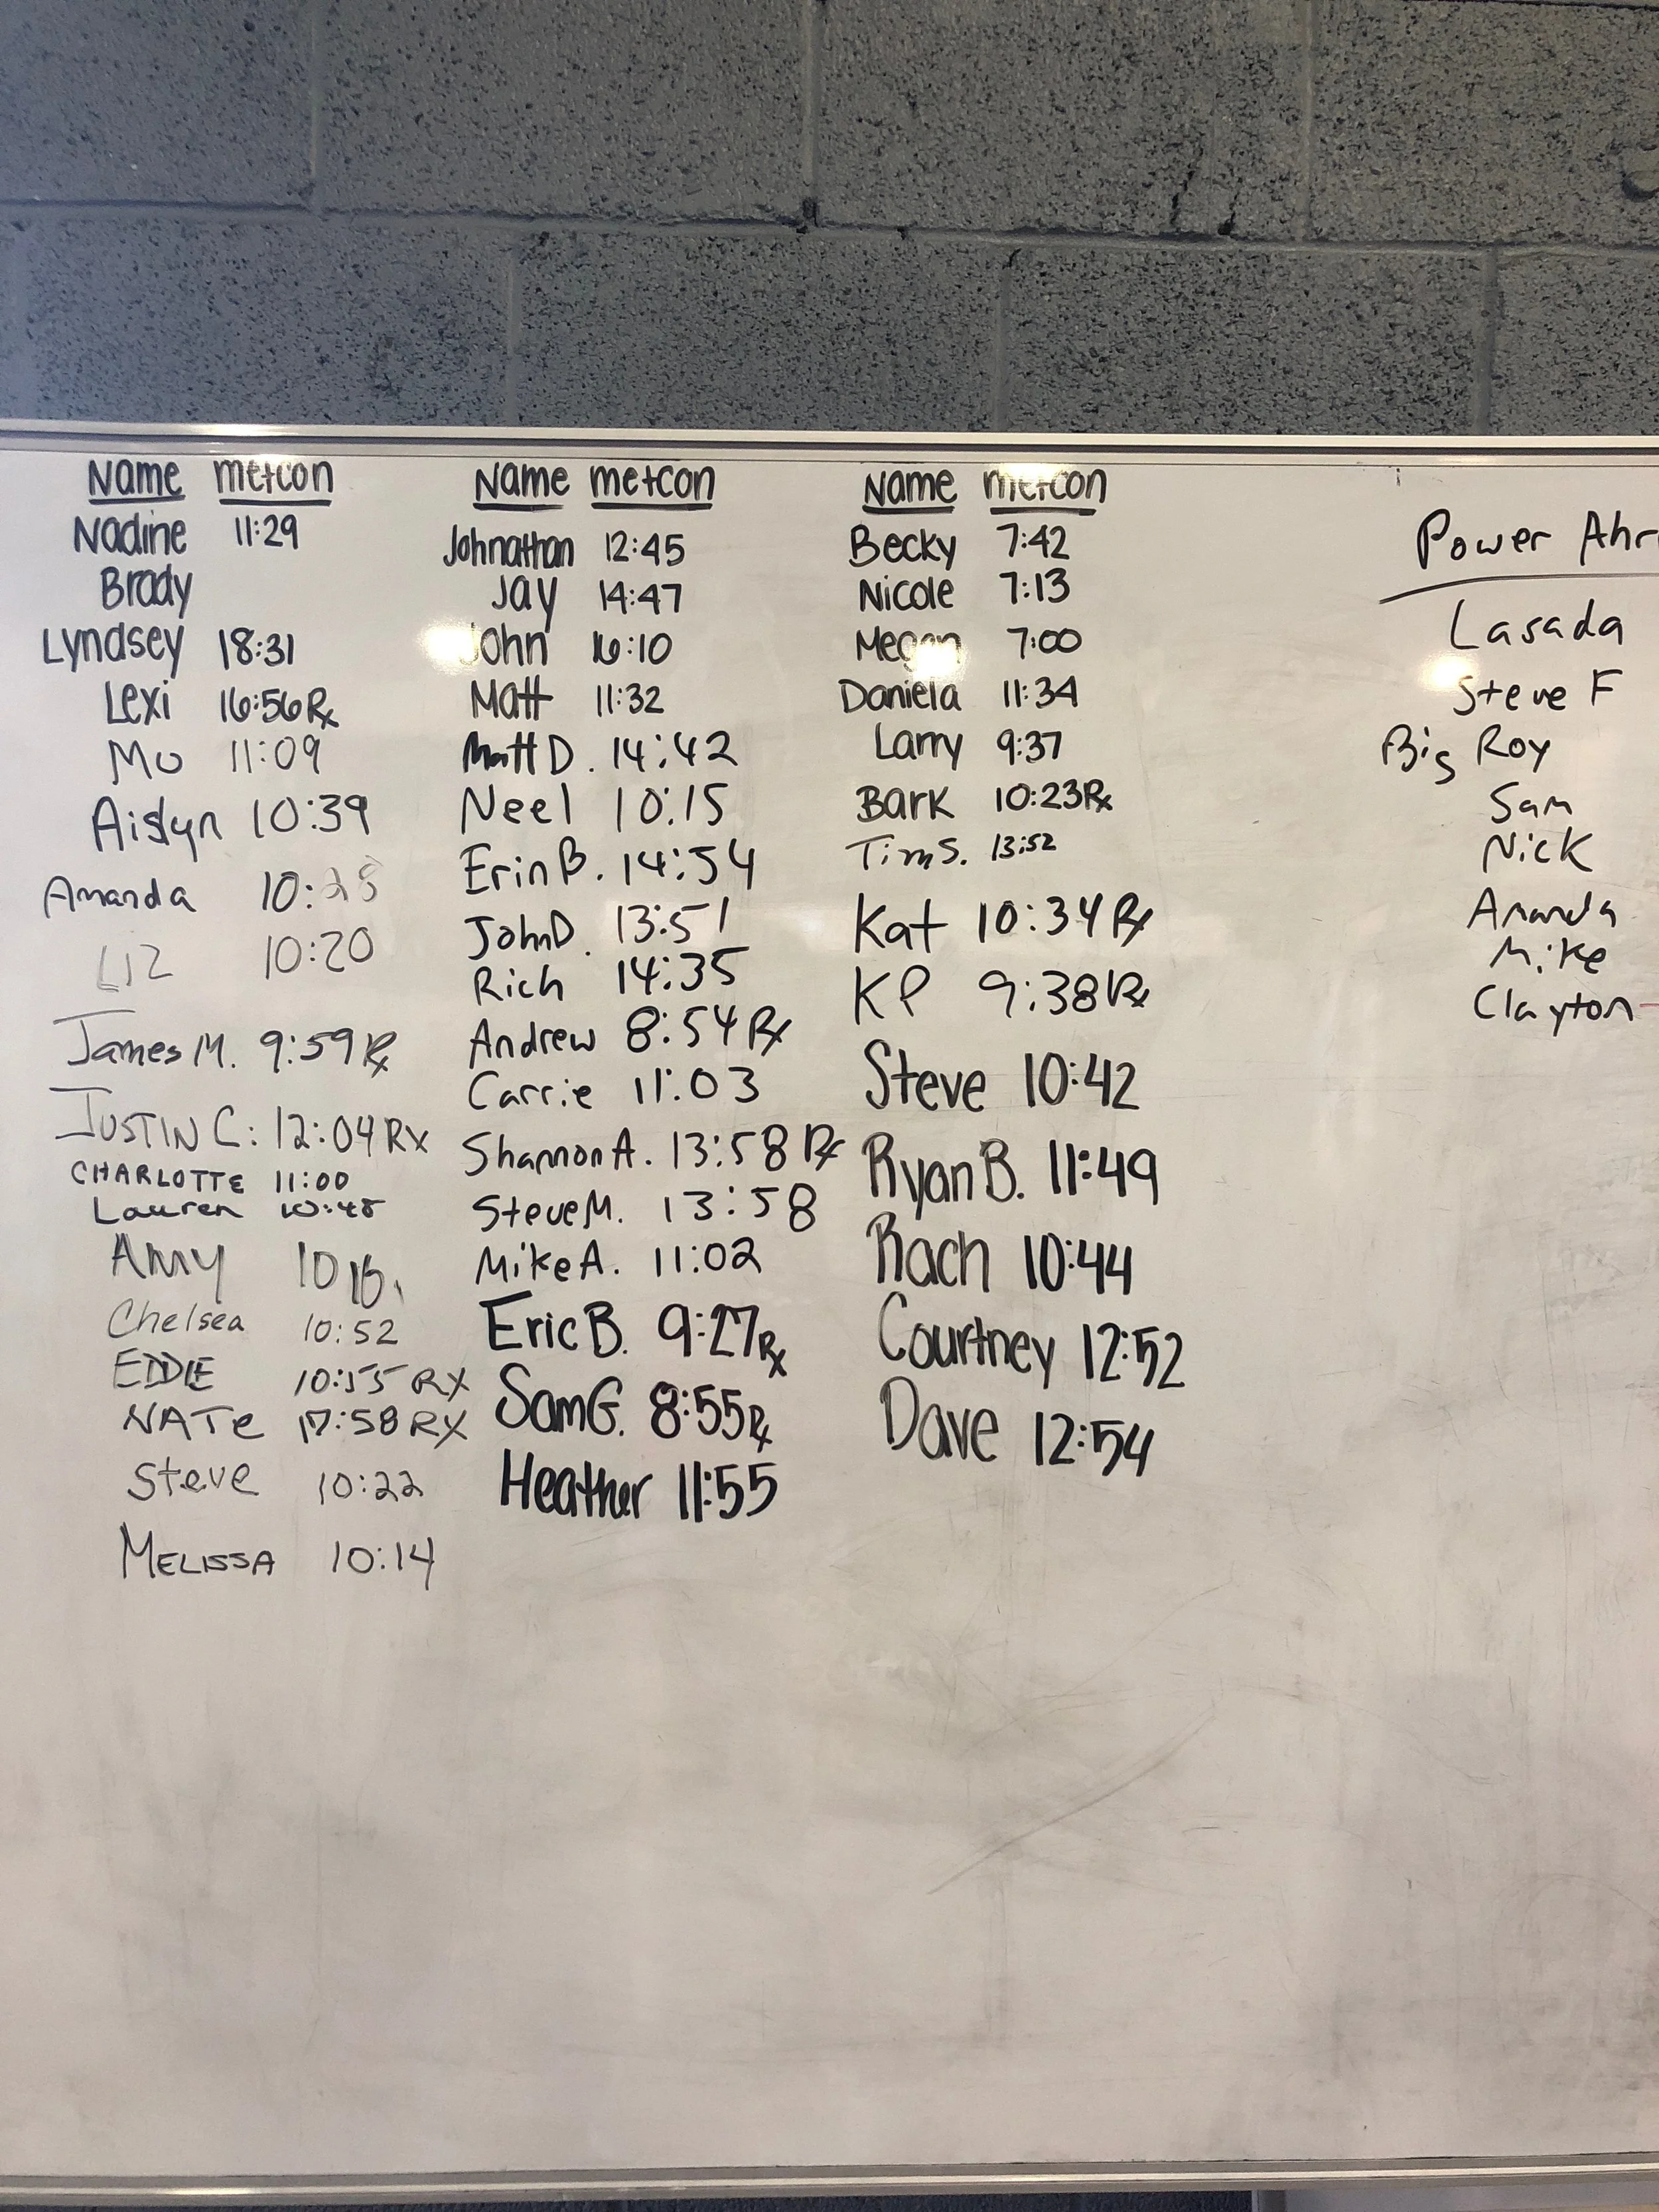 Name metcon
Nadine 11:29
Brady
Lyndsey 18:31
Lexi 16:56 Rx
Mo 11:09
Aislyn 10:39
Amanda 10:25
Liz 10:20
James M. 9:59 Rx
JUSTIN C: 12:04 RX
CHARLOTTE 11:00
Lauren 10:48
Amy
Chelsea 10:52
EDDIE 10:55 RX
NATe 17:58 RX
Steve 10:22
MELISSA 10:14
Name metcon
Johnathan 12:45
Jay 14:47
John 16:10
Matt 11:32
Matt D. 14:42
Neel 10:15
Erin B. 14:54
John D. 13:51
Rich 14:35
Andrew 8:54 Rx
Carrie 11:03
Shannon A. 13:58 Rx
Steve M. 13:58
Mike A. 11:02
Eric B. 9:27 Rx
Sam G. 8:55 Rx
Heather 11:55
Name metcon
Becky 7:42
Nicole 7:13
Megan 7:00
Daniela 11:34
Larry 9:37
Bark 10:23 Rx
Tim S. 13:52
Kat 10:34 Rx
KP 9:38 Rx
Steve 10:42
Ryan B. 11:49
Rach 10:44
Courtney 12:52
Dave 12:54
Power
Lasada
Steve F
Big Roy
Sam
Nick
Amanda
Mike
Clayton